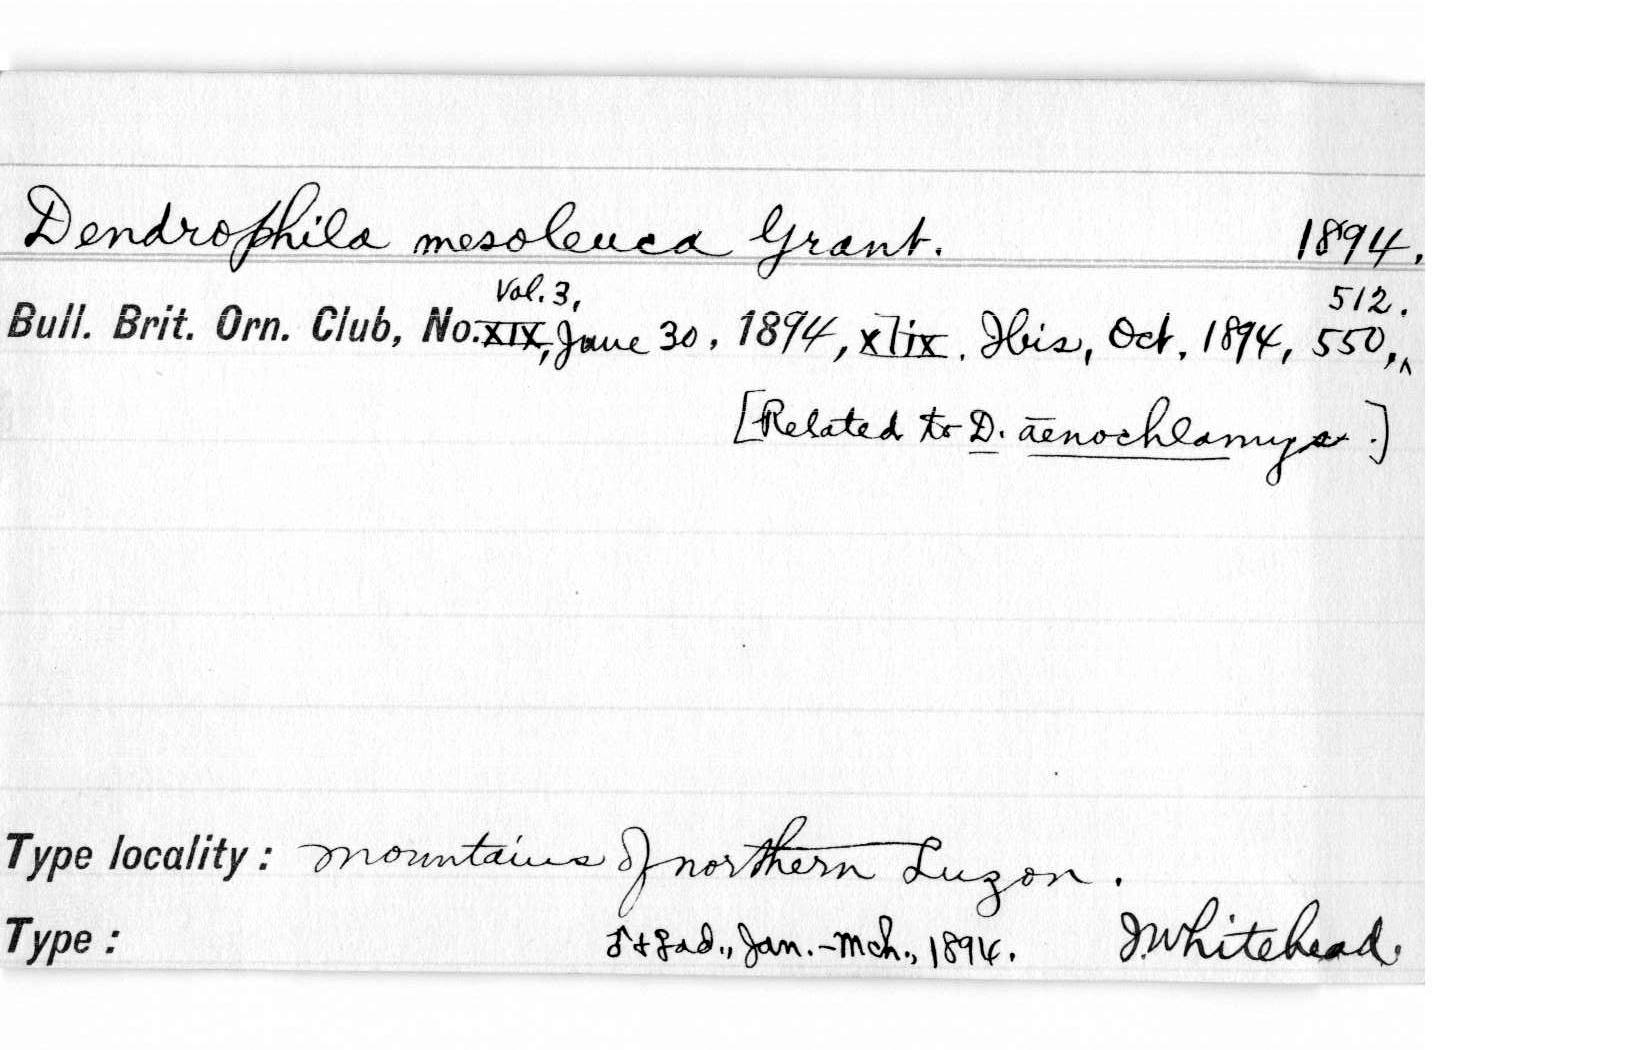 Dendrophila mesoleuca Grant. 1894.
Vol. 3, 512.
Bull. Brit. Orn. Club, No. XIX, June 30, 1894, xlix. Ibis, Oct. 1894, 550,^
[Related to D. aenochlamys.]
Type locality: mountains of northern Luzon.
Type: ♂+♀ad., Jan.-Mch., 1894. J. Whitehead.